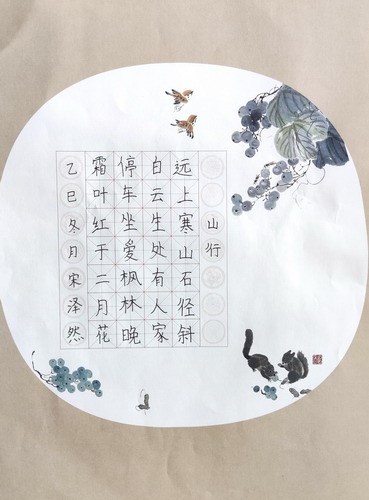 山行
远上寒山石径斜
白云生处有人家
停车坐爱枫林晚
霜叶红于二月花
乙巳冬月宋泽然